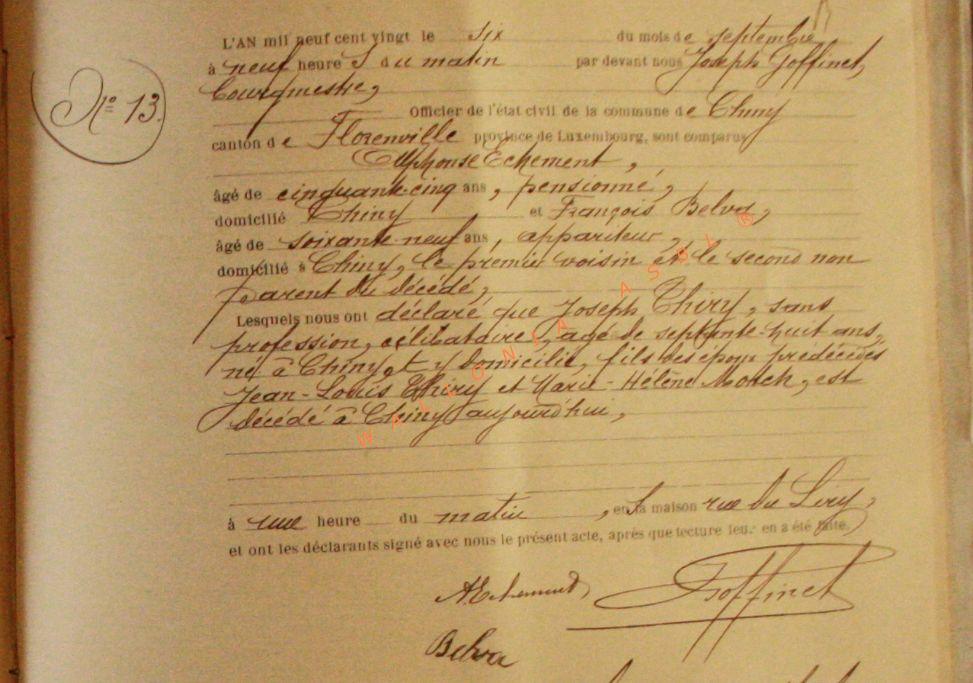 L'AN mil neuf cent vingt le six du mois de septembre
à neuf heures du matin par devant nous Joseph Goffinet,
Bourgmestre,
N° 13.
Officier de l'état civil de la commune de Chiny
canton de Florenville province de Luxembourg, sont comparus
Alphonse Echement,
âgé de cinquante-cinq ans, pensionné,
domicilié Chiny et François Belva,
âgé de soixante-neuf ans, appariteur,
domicilié à Chiny, le premier voisin et le second non
parent du décédé,
Lesquels nous ont déclaré que Joseph Thiry, sans
profession, célibataire, agé de septante-huit ans,
né à Chiny et y domicilié, fils des époux prédécédés
Jean-Louis Thiry et Marie-Hélène, est
décédé à Chiny aujourd'hui,
à une heure du matin, en sa maison rue du
et ont les déclarants signé avec nous le présent acte, après que lecture leur en a été faite.
AEchement Goffinet
Belva
WALLONIA ASBL ®